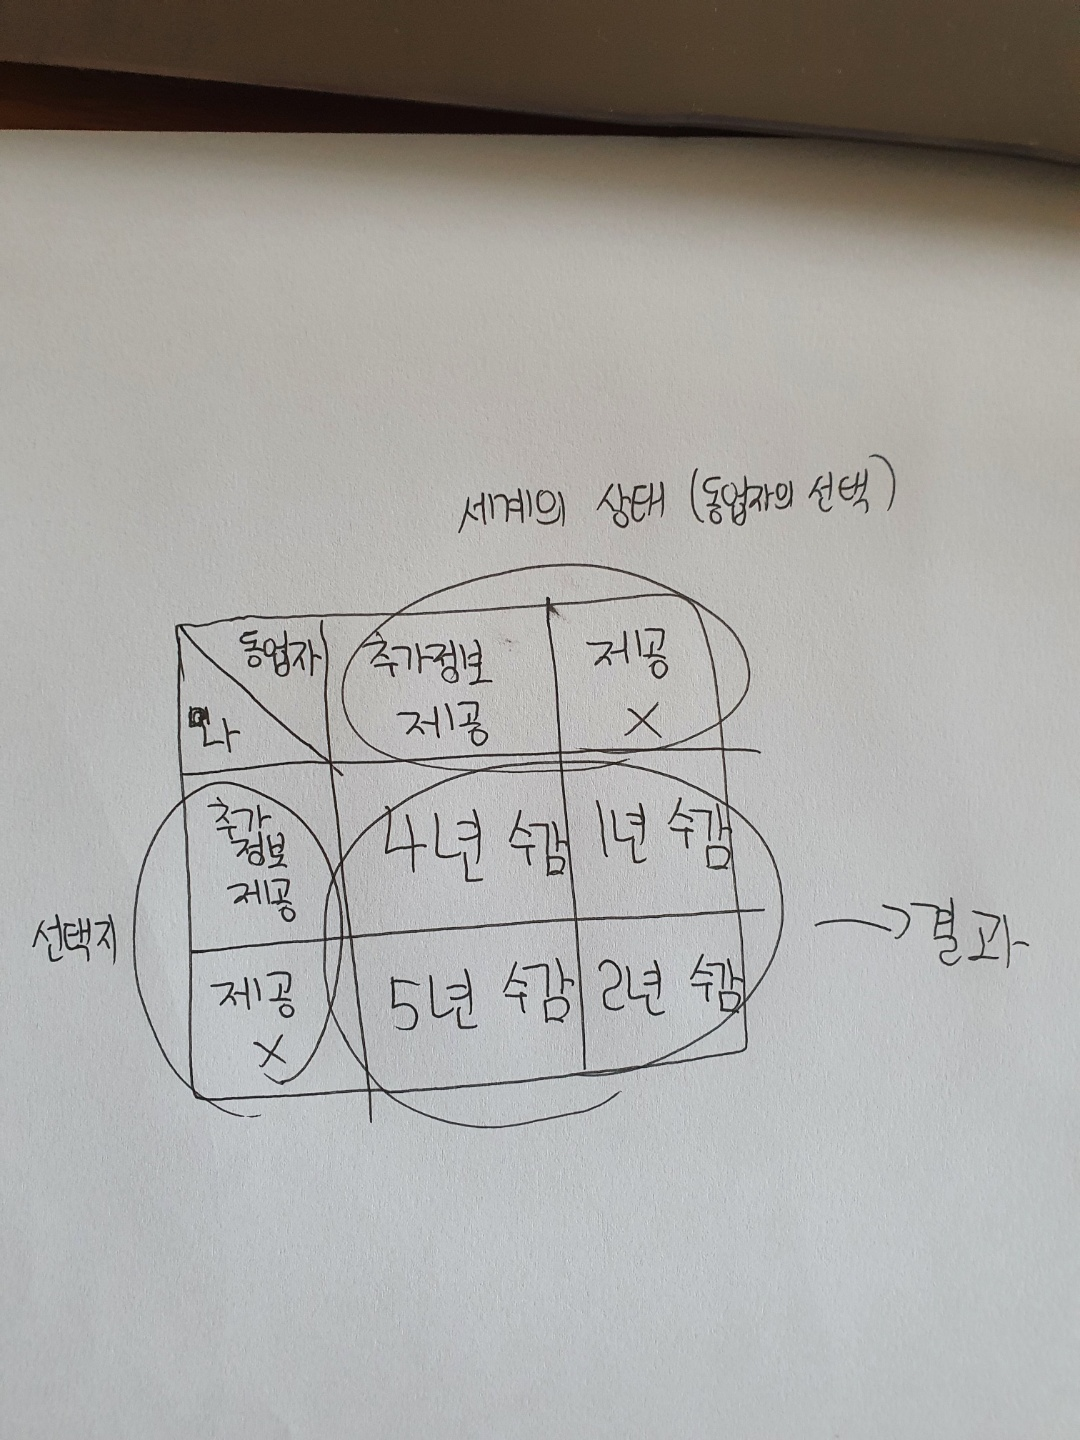 세계의 상태 (동업자의 선택)
동업자
나
추가정보
제공
제공
X
추가
정보
제공
4년 수감
1년 수감
선택지
→ 결과
제공
X
5년 수감
2년 수감